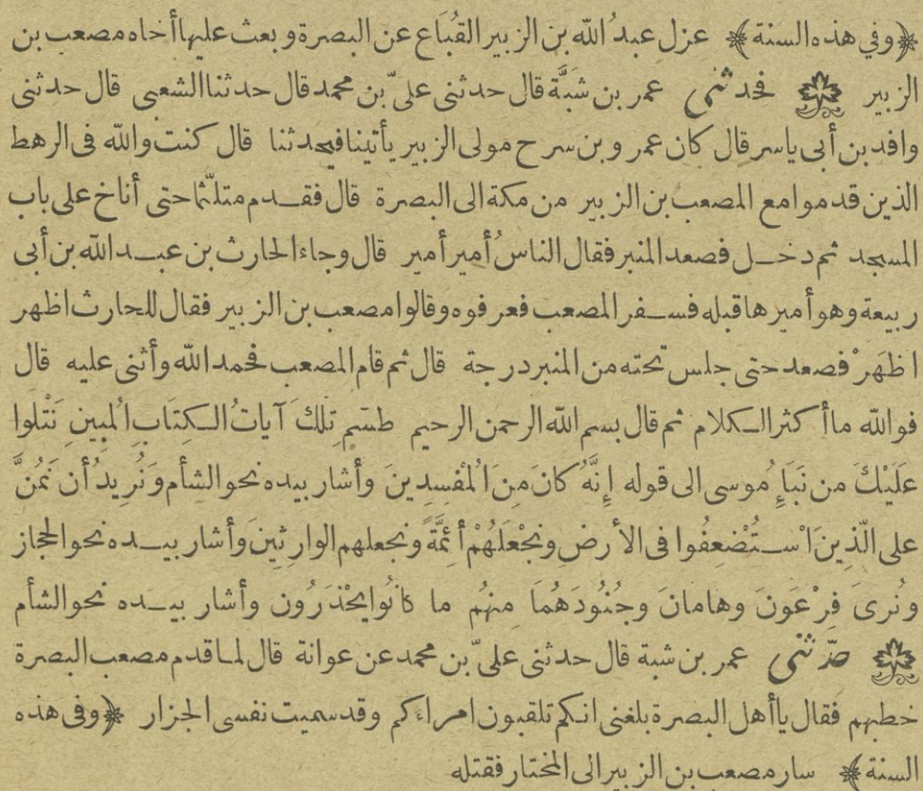 ﴿وفي هذه السنة﴾ عزل عبدُ الله بن الزبير القُبَاع عن البصرة وبعث عليها أخاه مصعب بن
الزبير فحدثني عمر بن شبَّة قال حدثنى علىّ بن محمد قال حدثنا الشعبى قال حدثنى
وافد بن أبى ياسر قال كان عمرو بن سرح مولى الزبير يأتينا فيحدثنا قال كنت والله فى الرهط
الذين قدموا مع المصعب بن الزبير من مكة الى البصرة قال فقدم متلثّما حتى أناخ على باب
المسجد ثم دخل فصعد المنبر فقال الناسُ أمير أمير قال وجاء الحارث بن عبد الله بن أبى
ربيعة وهو أميرها قبله فسفر المصعب فعرفوه وقالوا مصعب بن الزبير فقال للحارث اظهر
اظهَرْ فصعد حتى جلس تحته من المنبر درجة قال ثم قام المصعب فحمد الله وأثنى عليه قال
فوالله ما أكثر الكلام ثم قال بسم الله الرحمن الرحيم طسَم تِلْكَ آيَاتُ الْكِتَابِ الْمُبِينِ نَتْلوا
عَلَيْكَ من نَبَإِ مُوسى الى قوله إِنَّهُ كانَ مِنَ الْمُفْسِدِينَ وأشار بيده نحو الشأم وَنُرِيدُ أن نَمُنَّ
على الَّذِينَ اسْتُضْعِفُوا فى الأرض ونَجْعَلَهُمْ أَئِمَّةً ونجعلهم الوارِثِينَ وأشار بيده نحو الحجاز
ونُرِىَ فِرْعَوْنَ وهامانَ وجُنُودَهُمَا مِنْهُم ما كانُوا يَحْذَرُون وأشار بيده نحو الشأم
حدّثنى عمر بن شبة قال حدثنى علىّ بن محمد عن عوانة قال لما قدم مصعب البصرة
خطبهم فقال يا أهل البصرة بلغنى انكم تلقبون امراءكم وقد سميت نفسى الجزار ﴿وفى هذه
السنة﴾ سار مصعب بن الزبير الى المختار فقتله